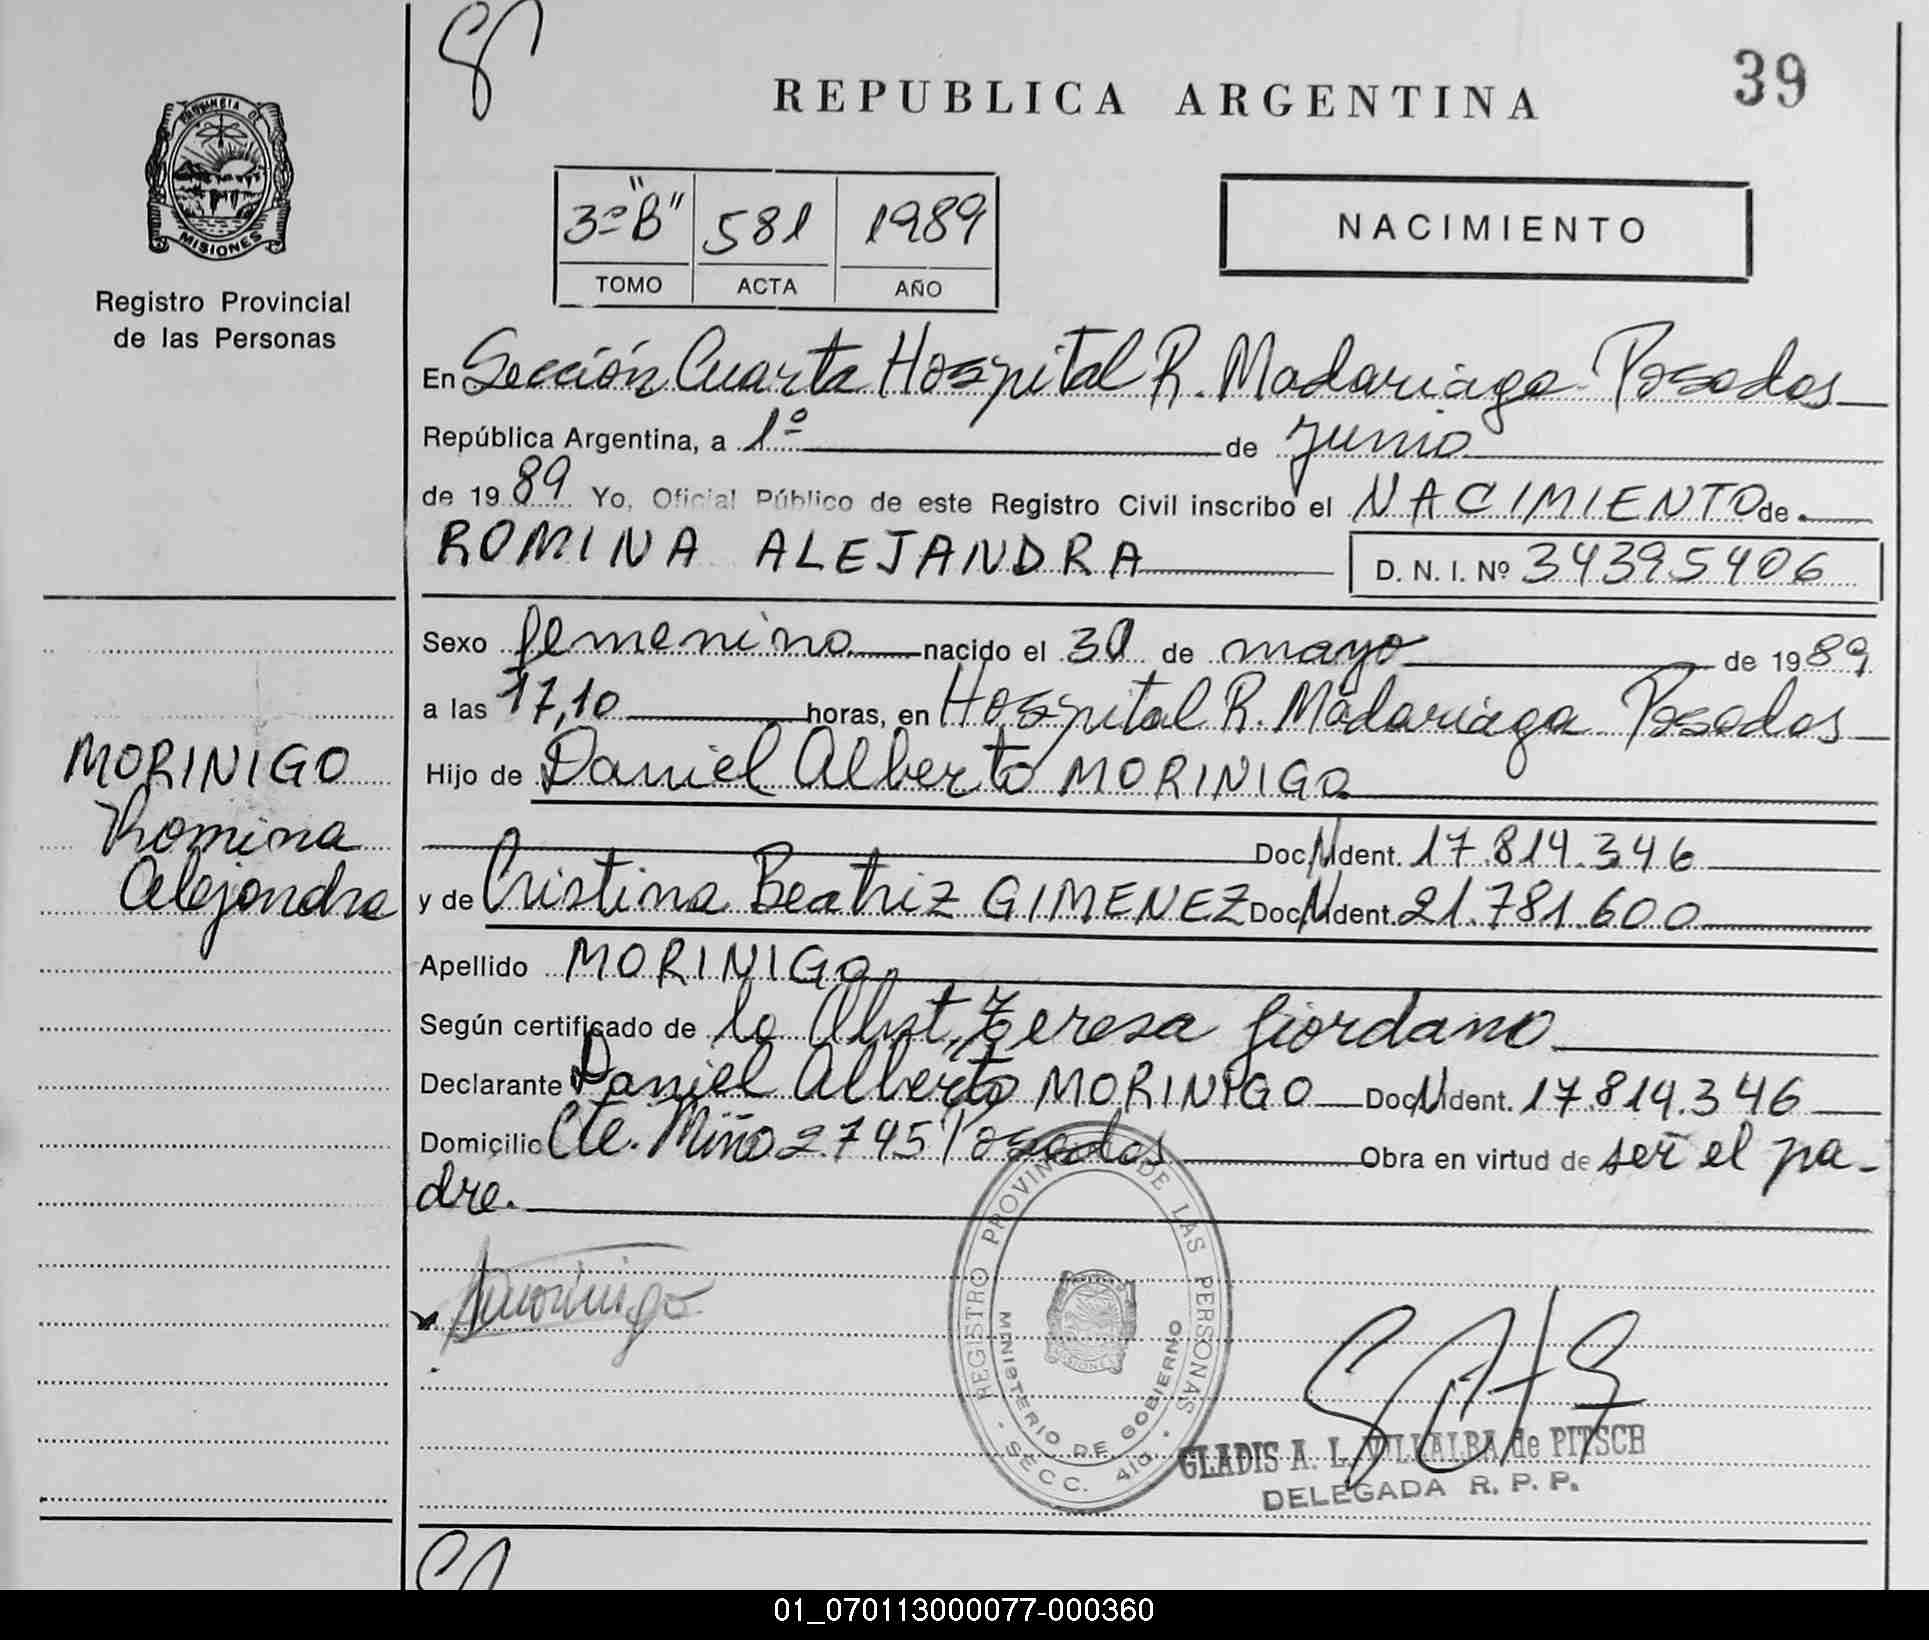 39
REPUBLICA ARGENTINA
PROVINCIA DE
MISIONES
Registro Provincial
de las Personas
3º "B" 581 1989
TOMO ACTA AÑO
NACIMIENTO
En Sección Cuarta Hospital R. Madariaga Posadas
República Argentina, a 1º de Junio
de 1989 Yo, Oficial Público de este Registro Civil inscribo el NACIMIENTO de
ROMINA ALEJANDRA D. N. I. Nº 34395406
Sexo femenino nacido el 30 de mayo de 1989
a las 17,10 horas, en Hospital R. Madariaga Posadas
MORINIGO
Romina
Alejandra
Hijo de Daniel Alberto MORINIGO
Doc. N Ident. 17.814.346
y de Cristina Beatriz GIMENEZ Doc. N Ident. 21.781.600
Apellido MORINIGO
Según certificado de la Obst. Teresa Giordano
Declarante Daniel Alberto MORINIGO Doc. N Ident. 17.814.346
Domicilio Cte. Miño 2745 Posadas Obra en virtud de ser el pa-
dre.
REGISTRO PROVINCIAL DE LAS PERSONAS
MINISTERIO DE GOBIERNO
MISIONES
SECC. 4ta
GLADIS A. L. VILLALBA de PITSCH
DELEGADA R. P. P.
01_070113000077-000360